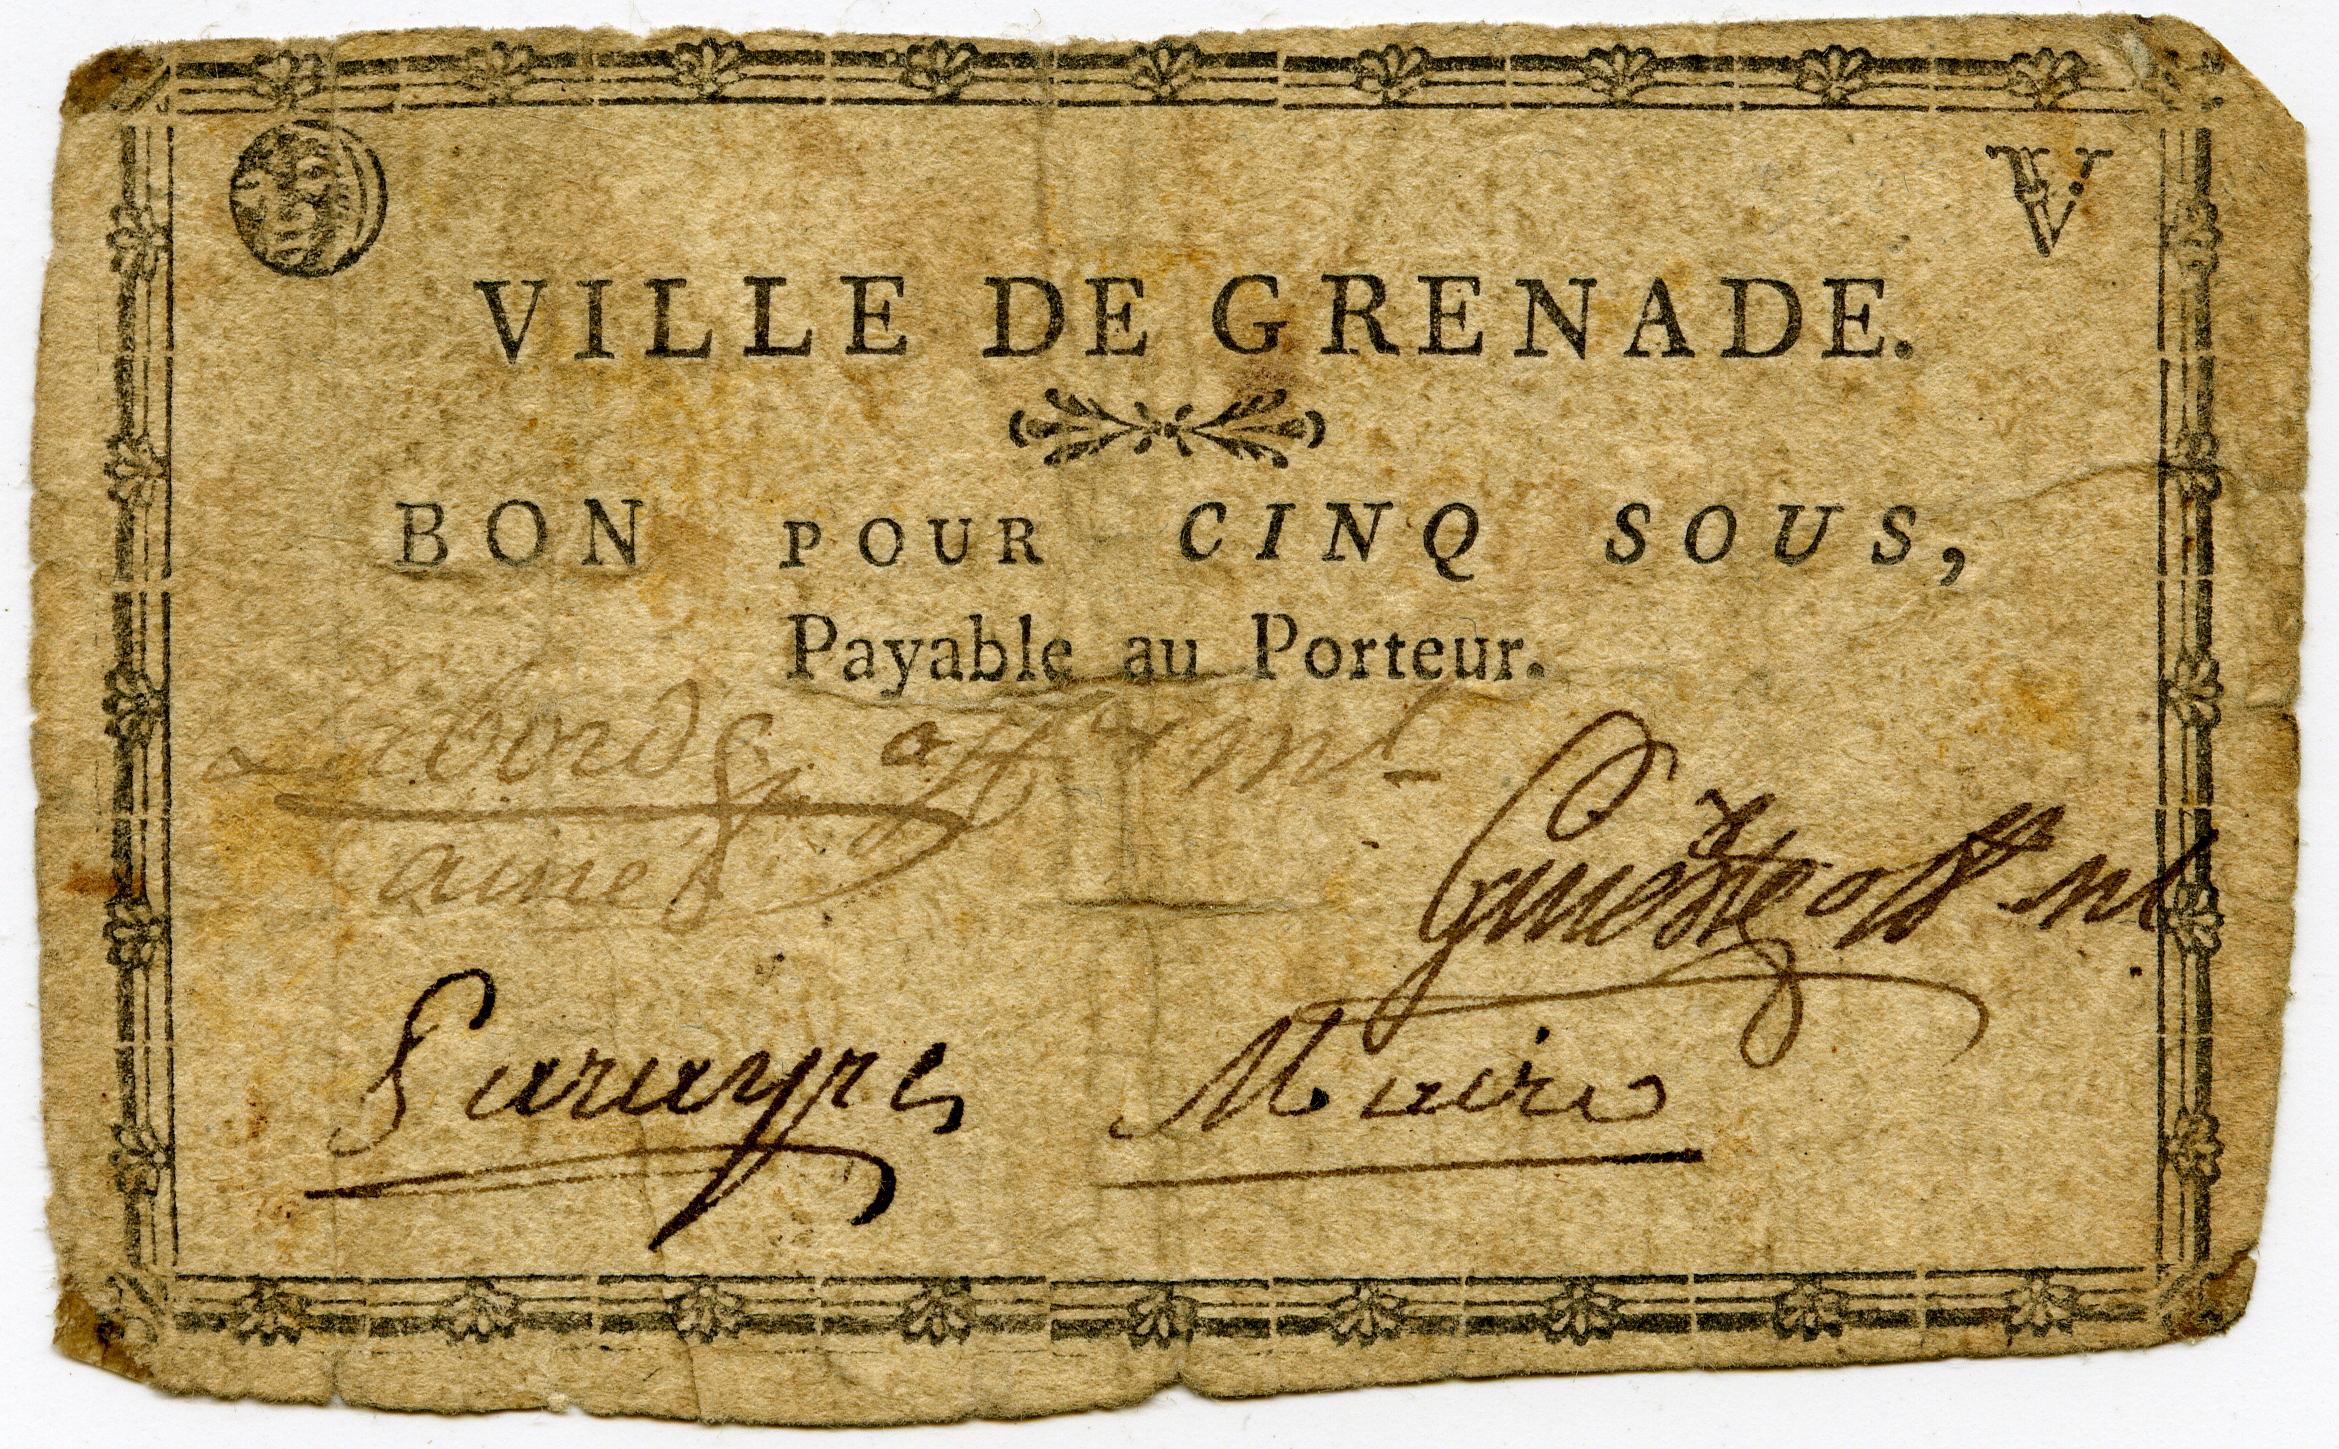 V
VILLE DE GRENADE.
BON POUR CINQ SOUS,
Payable au Porteur.
off m.l
ainé
Maire